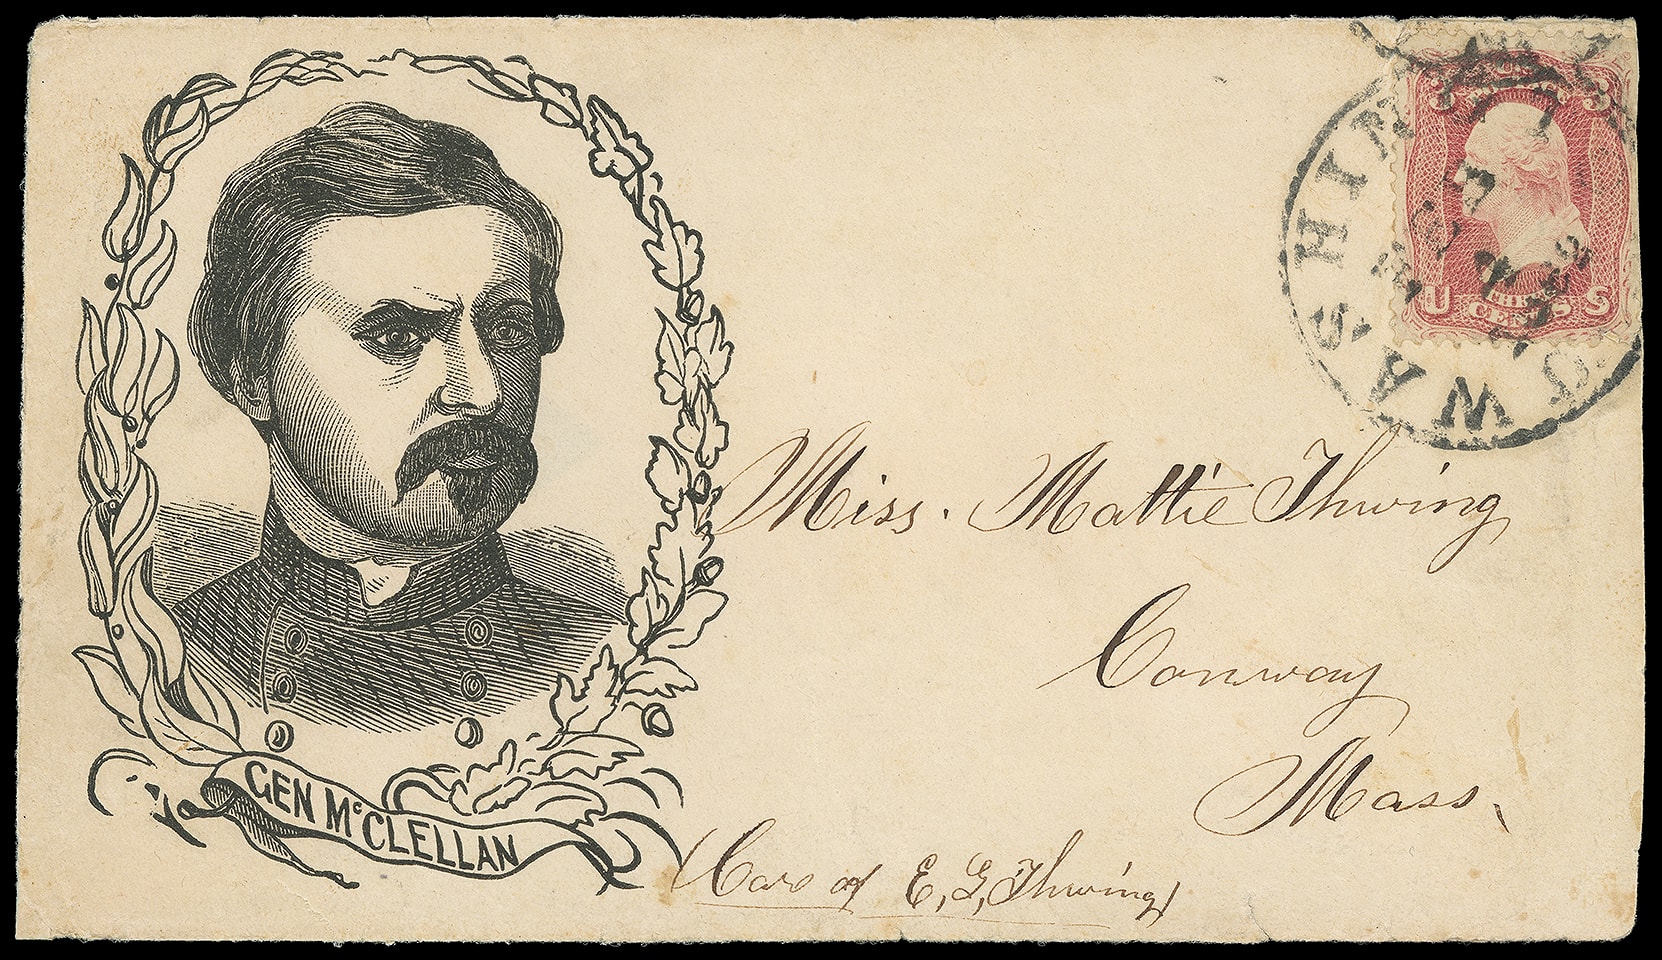 GEN McCLELLAN
WASHIN
3 3
U THREE S
CENTS
Miss. Mattie Thwing
Conway
Mass.
(Care of E. G. Thwing)